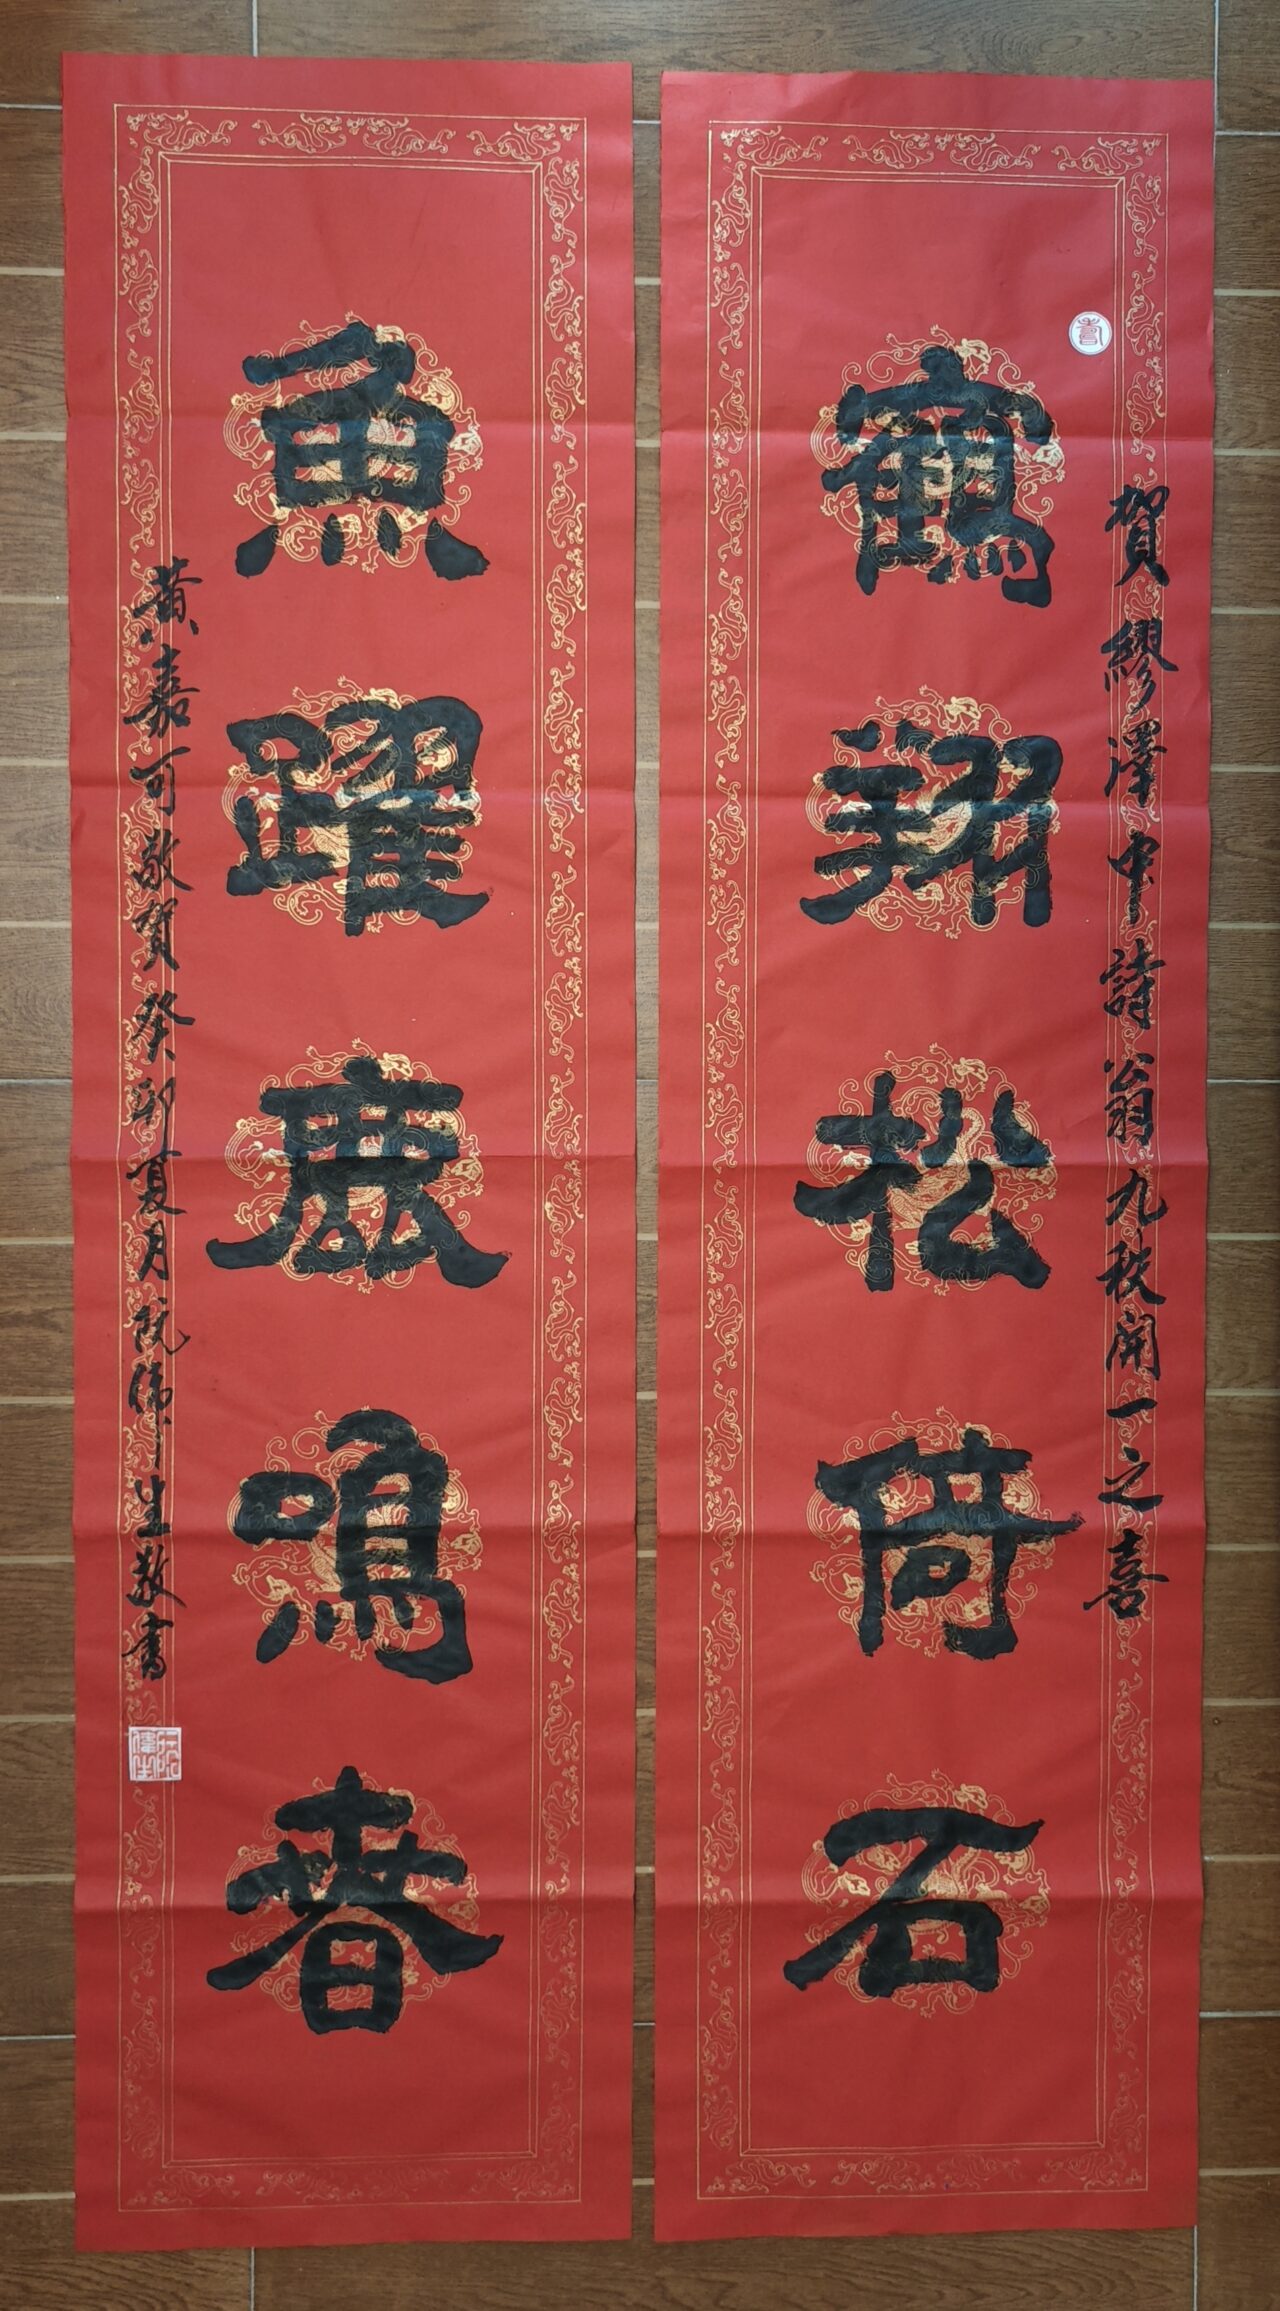 壽
賀繆澤中詩翁九秩開一之喜
鶴翔松倚石
魚躍鹿鳴春
黃嘉可敬賀癸卯夏月阮偉生敬書